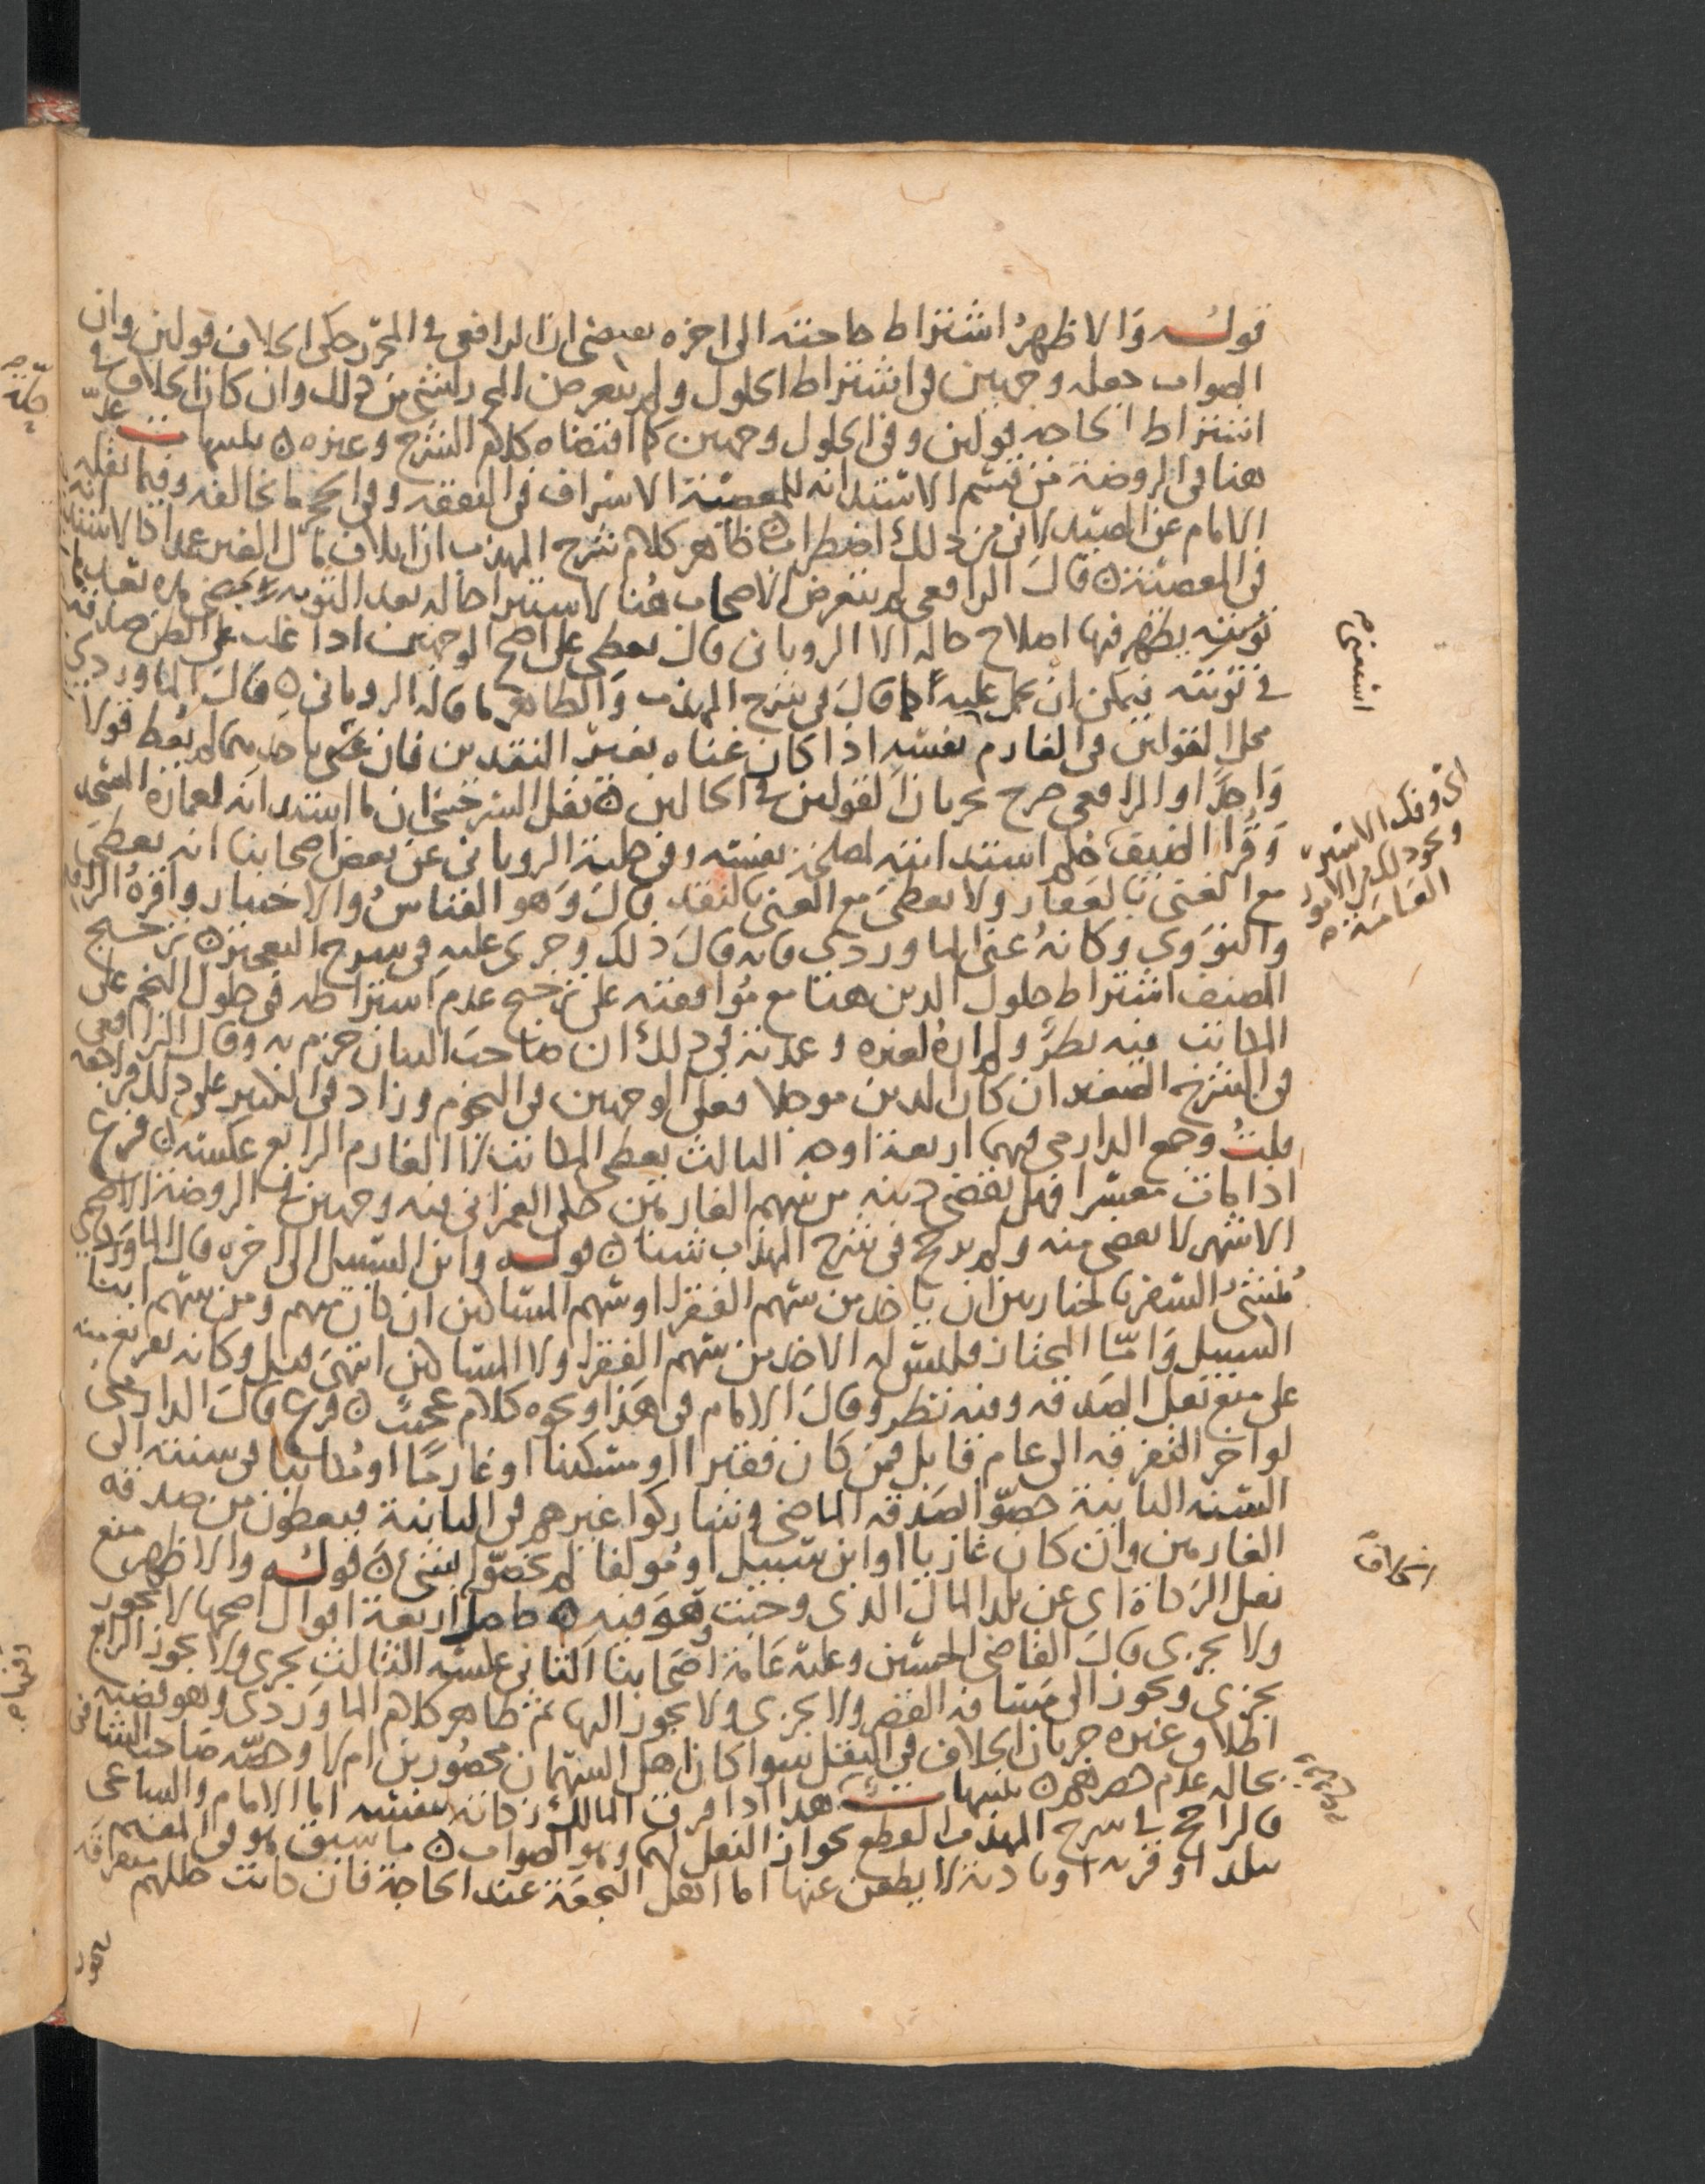 قوله والاظهر اشتراط حاجته الى اخره يقتضي ان الرافعي في المحرر حكى الخلاف قولين وان
الصواب جعله وجهين في اشتراط الحلول ولم يتعرض المحرر لشي من ذلك وان كان الخلاف في
اشتراط الحاجه قولين وفي الحلول وجهين كما اقتضاه كلام الشرح وغيره تنبيهات عد
هنا في الروضة من قسم الاستدانه للمعصية الاسراف في النفقه وفي الحجر ما يخالفه وفيما نقله
الامام عن الصيدلاني من ذلك اضطراب ظاهر كلام شرح المهذب ان اتلاف مال الغير عمدا كالاستدانه
في المعصية قال الرافعي لم يتعرض الاصحاب هنا لاستبرا حاله بعد التوبه بمضي مده بعد
توبته يظهر فيها اصلاح حاله الا الروياني قال يعطى على اصح الوجهين اذا غلب على الظن صدقه
في توبته فيمكن ان يحمل عليه قال في شرح المهذب والظاهر ما قاله الروياني قال الماوردي
محل القولين في الغارم لنفسه اذا كان غناه بغير النقدين فان غني باحديهما لم يعط قولا
واحدا والرافعي صرح بجريان القولين في الحالين نقل السرخسي ان ما استدانه لعمارة المسجد
وقرا الضيف حكم استدانته لمصلحة نفسه وفي حلية الروياني عن بعض اصحابنا انه يعطى
مع الغنى بالعقار ولا يعطى مع الغنى بالنقد قال وهو القياس والاختيار واقره الرافعي
والنووي وكانه عنى الماوردي فانه قال ذلك وجرى عليه في شرح التعجيز ترجيح
المصنف اشتراط حلول الدين هنا مع موافقته على ترجيح عدم اشتراطه في حلول النجم على
المكاتب فيه نظر ولم اره لغيره وعمدته في ذلك ان صاحب البيان جزم به وقال الرافعي
في الشرح الصغير ان كان الدين موجلا فعلى الوجهين في النجوم وزاد في الكبير على ذلك
قلت وجمع الدارمي فيهما اربعة اوجه الثالث يعطى المكاتب لا الغارم الرابع عكسه فرع
اذا مات معسرا فهل يقضى دينه من سهم الغارمين حكى العمراني فيه وجهين في الروضة الاصح
الاشهر لا يقضى منه ولم يرجح في شرح المهذب شيئا قوله وابن السبيل الى اخره قال الماوردي
منشئ السفر بالخيار بين ان ياخذ من سهم الفقرا او سهم المساكين ان كان منهم ومن سهم ابنا
السبيل واما المجتاز فليس له الاخذ من سهم الفقرا ولا المساكين انتهى قيل وكانه تفريع منه
على منع نقل الصدقه وفيه نظر وقال الامام في هذا ونحوه كلام عجيب فرع قال الدارمي
لو اخر التفرقه الى عام قابل فمن كان فقيرا او مسكينا او غارما او مكاتبا من سنته الى
السنه الثانية خصوا بصدقه الماضي وشاركوا غيرهم في الثانية فيعطون من صدقه
الغارمين وان كان غازيا او ابن سبيل او مولفا لم يخصوا بشي قوله والاظهر منع
نقل الزكاة اى عن بلد المال الذي وجبت وهو فيه حاصله اربعة اقوال اصحها لا يجوز
ولا يجزي قال القاضي الحسين وعليه عامة اصحابنا الثاني عكسه الثالث يجزي ولا يجوز الرابع
يجزي ويجوز الى مسافه القصر ولا يجزي ولا يجوز اليها ثم ظاهر كلام الماوردي وهو قضيه
اطلاق غيره جريان الخلاف في النقل سوا كان اهل السهمان محصورين ام لا وخصه صاحب الشافي
بحاله عدم حصرهم تنبيهات هذا اذا فرق المالك زكاته بنفسه اما الامام والساعي
فالراجح في شرح المهذب القطع بجواز النقل لهما وهو الصواب ما سبق هو في المقيم
ببلد او قريه او باديه لا يظعن عنها اما اهل النجعة عند الحاجة فان كانت حللهم متفرقه
استغنى
اى وفك الاسير
ونحو ذلك من الامور
العامة
الخلاف